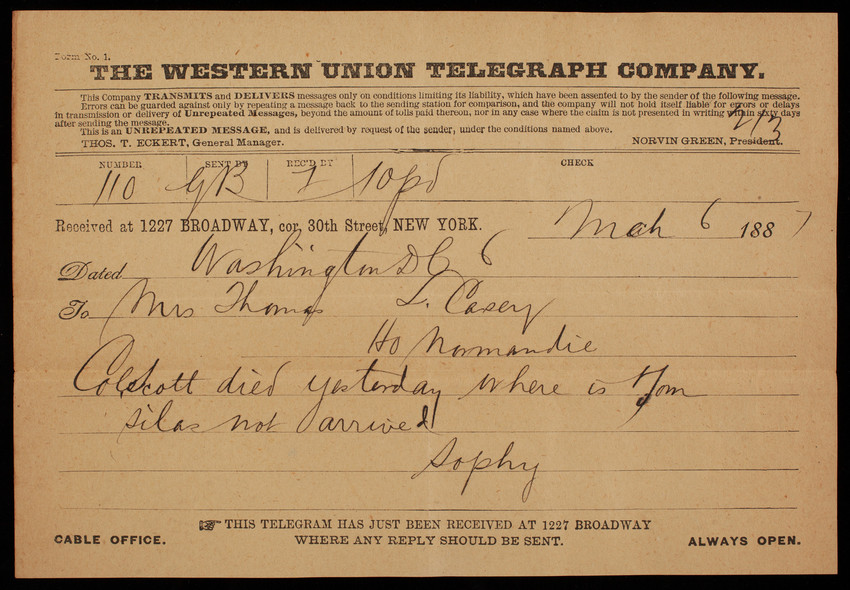 Form No. 1.
THE WESTERN UNION TELEGRAPH COMPANY.
This Company TRANSMITS and DELIVERS messages only on conditions limiting its liability, which have been assented to by the sender of the following message.
Errors can be guarded against only by repeating a message back to the sending station for comparison, and the company will not hold itself liable for errors or delays
in transmission or delivery of Unrepeated Messages, beyond the amount of tolls paid thereon, nor in any case where the claim is not presented in writing within sixty days
after sending the message.
This is an UNREPEATED MESSAGE, and is delivered by request of the sender, under the conditions named above.
THOS. T. ECKERT, General Manager. NORVIN GREEN, President.
213
NUMBER SENT BY REC'D BY CHECK
110 GB 10pd
Received at 1227 BROADWAY, cor. 30th Street, NEW YORK. Mch 6 1887
Dated Washington DC 6
To Mrs Thomas L. Casey
Ho Normandie
Col Scott died yesterday where is Tom
silas not arrived
Sophy
THIS TELEGRAM HAS JUST BEEN RECEIVED AT 1227 BROADWAY
CABLE OFFICE. WHERE ANY REPLY SHOULD BE SENT. ALWAYS OPEN.